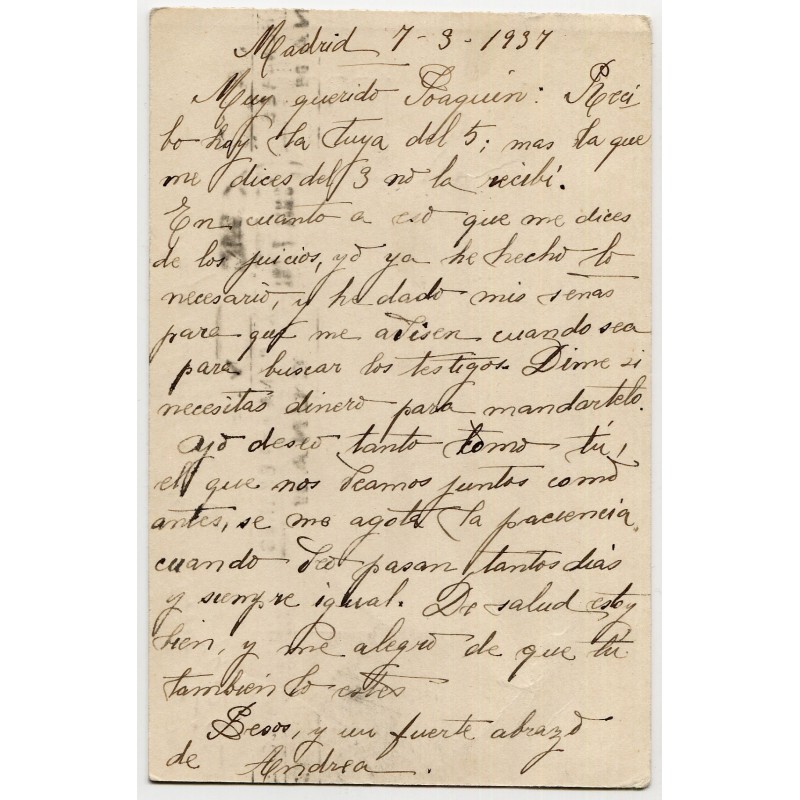 Madrid 7-3-1937
Muy querido Joaquin: Reci
bo hoy la tuya del 5; mas la que
me dices del 3 no la recibí.
En cuanto a eso que me dices
de los juicios, yo ya he hecho lo
necesario, y he dado mis señas
para que me avisen cuando sea
para buscar los testigos. Dime si
necesitas dinero para mandartelo.
Yo deseo tanto como tú,
el que nos veamos juntos como
antes, se me agota la paciencia
cuando veo pasan tantos dias
y siempre igual. De salud estoy
bien, y me alegro de que tú
tambien lo estés
Besos, y un fuerte abrazo
de Andrea.